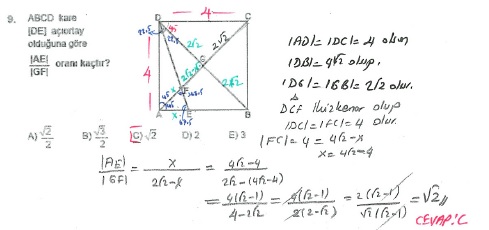 9. ABCD kare
[DE] açıortay
olduğuna göre
|AE|
|GF| oranı kaçtır?
A) √2/2 B) √3/2 C) √2 D) 2 E) 3
D 4 C
22.5
45
22.5
2√2
2√2
4
G
2√2-x
2√2
x
F
67.5
45
45
67.5
A E B
|AD|=|DC|=4 olsun
|DB|=4√2 olup
|DG|=|GB|=2√2 olur.
DCF ikizkenar olup
|DC|=|FC|=4 olur.
|FC|=4=4√2-x
x=4√2-4
|AE|/|GF| = x/(2√2-x) = (4√2-4)/(2√2-(4√2-4))
= 4(√2-1)/(4-2√2) = 4(√2-1)/2(2-√2) = 2(√2-1)/√2(√2-1) = √2 //
CEVAP: C